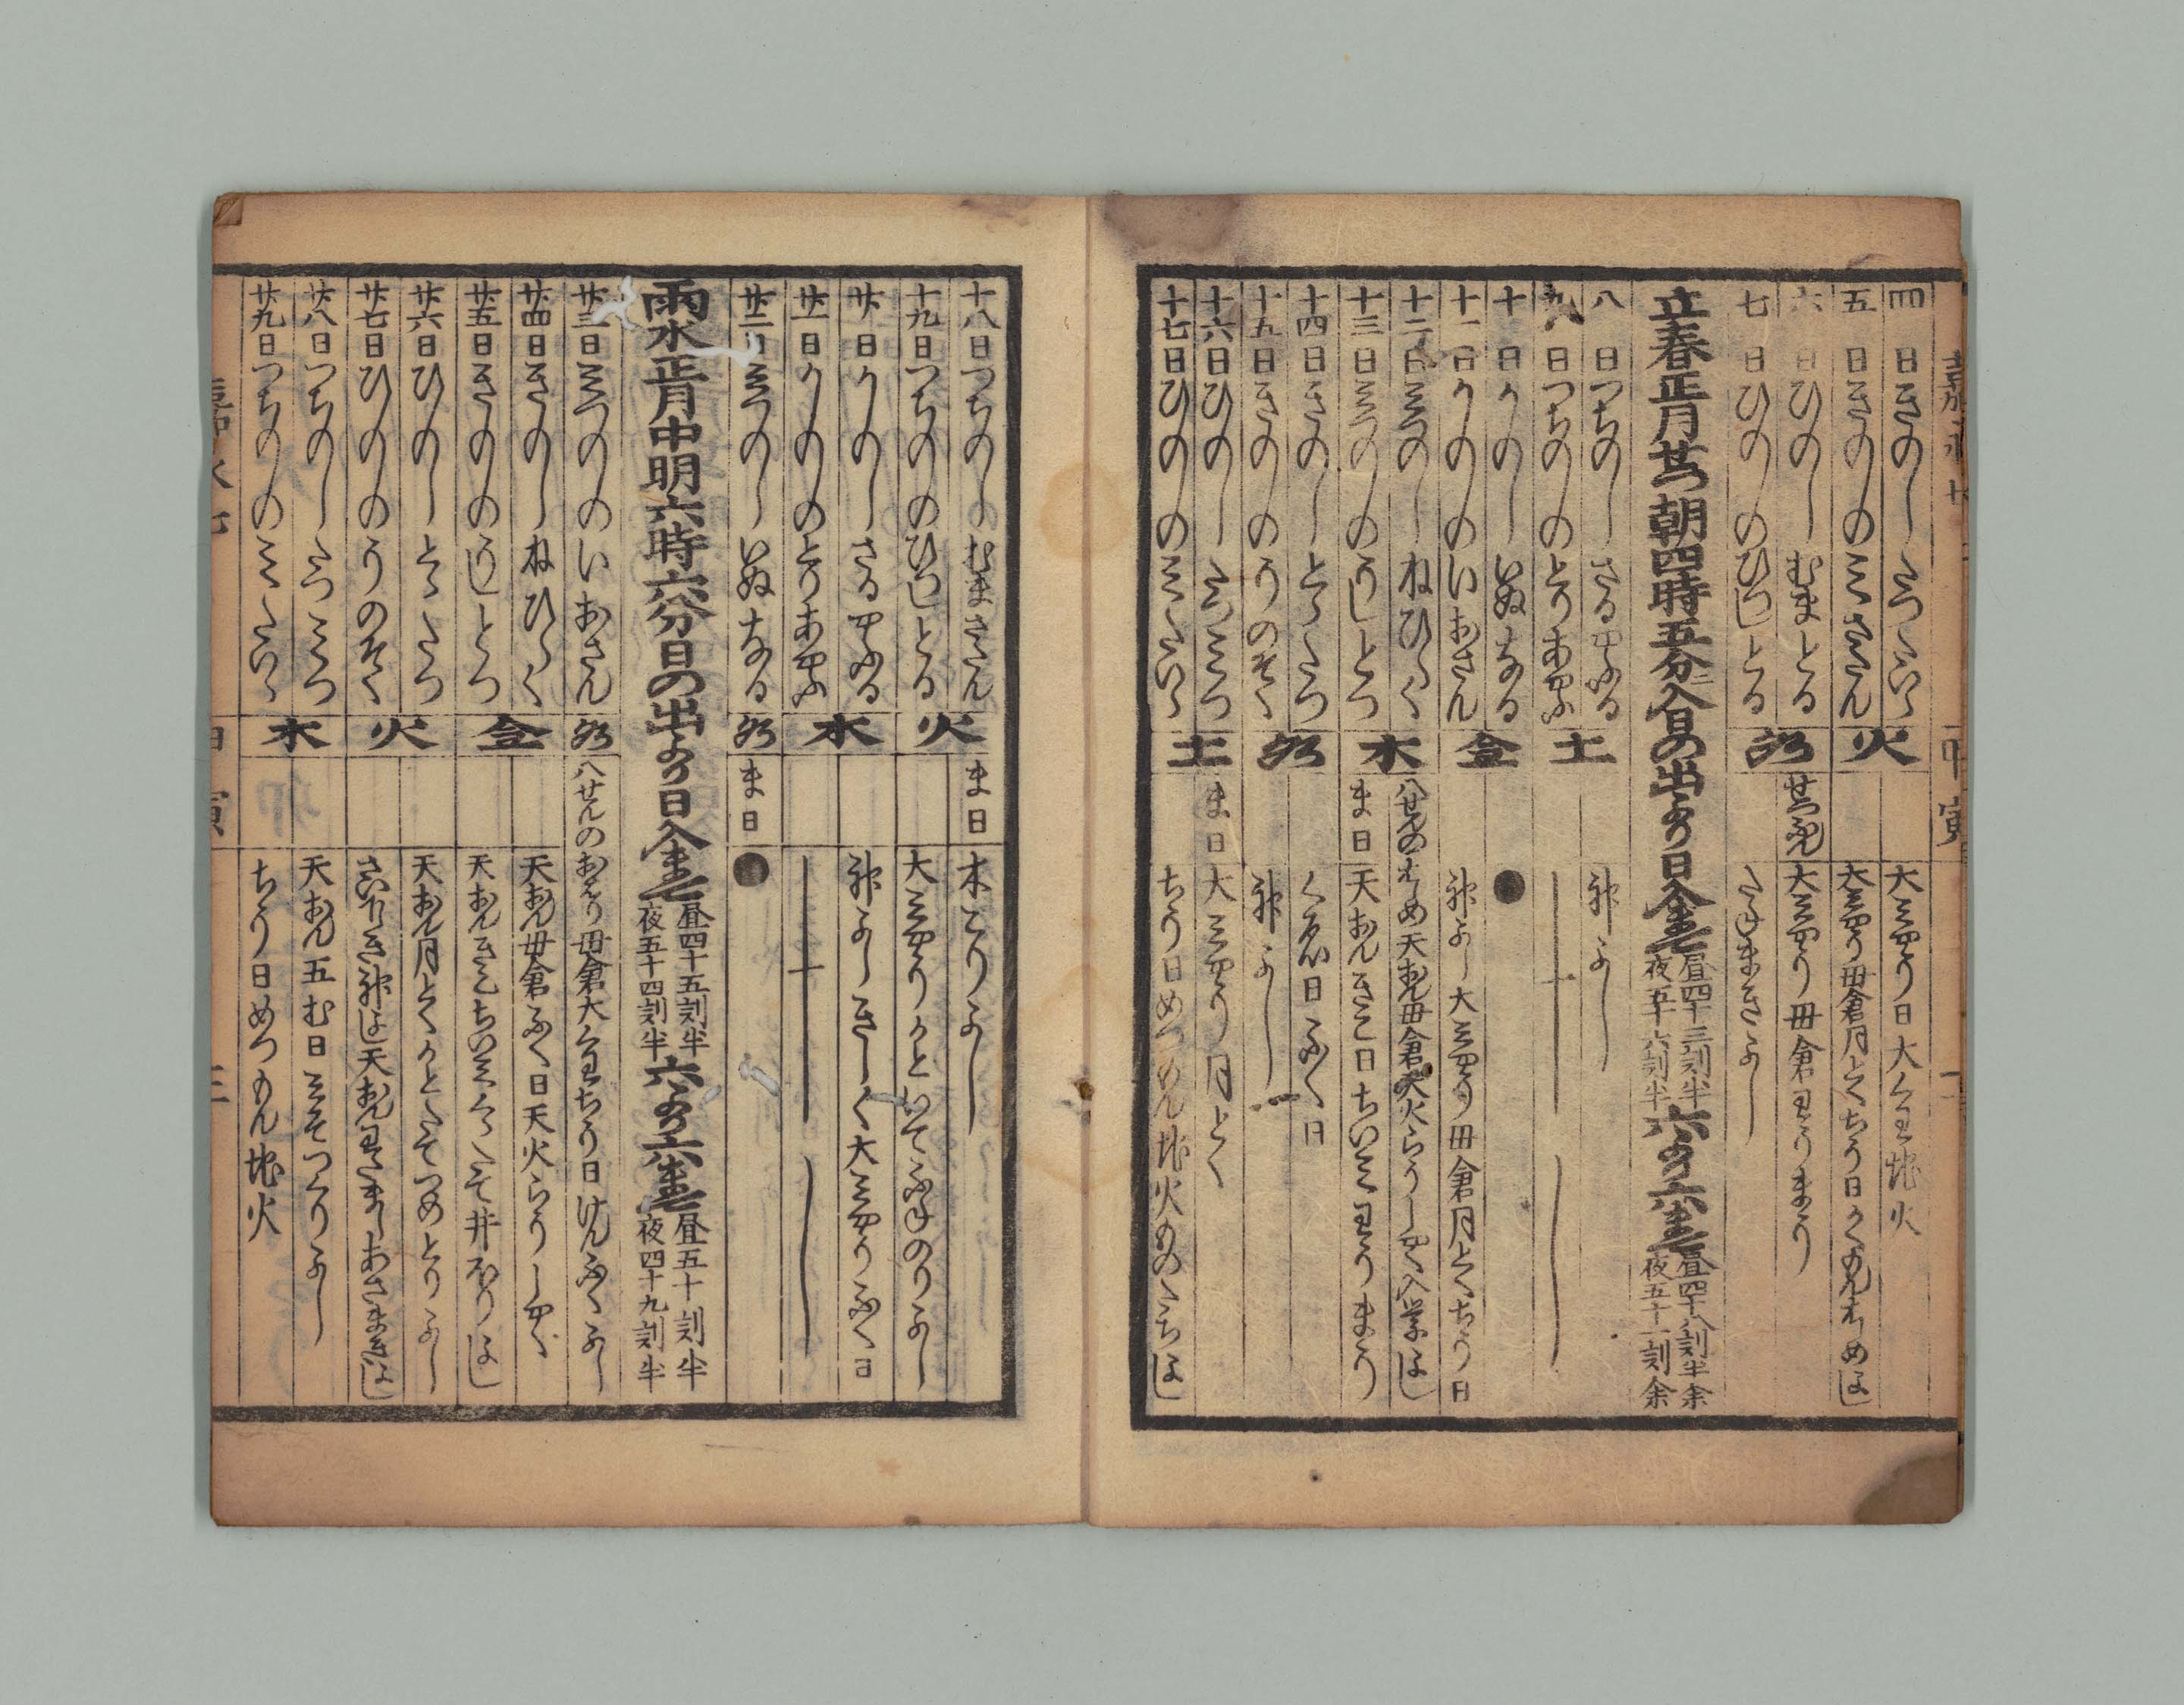 嘉永七
甲寅
二
四日きのへたつたいら
五日きのとのみさたん
六日ひのへむまとる
七日ひのとのひつしとる
火
金
大みやう日大くわ地火
大みやう母倉月とくちう日かくもんはしめよし
せつふん
大みやう母倉りうまう
たねまきよし
立春正月せつ朝四時五分ニ入日の出より日入まて
昼四十三刻半
夜五十六刻半
六より六まて
昼四十八刻半余
夜五十一刻余
八日つちのへさるやふる
九日つちのとのとりあやふ
十日かのへいぬなる
十一日かのとのいおさん
十二日みつのへねひらく
十三日みつのとのうしとつ
十四日きのへとらたつ
十五日きのとのうのそく
十六日ひのへたつみつ
十七日ひのとのみたいら
土
金
木
水
土
神よし
十
●
神よし大みやう母倉月とくちう日
八せんのはしめ天おん母倉天火らうしやく入学よし
ま日
天おんきこ日ちいみりうまう
くゑ日ふく日
神よし
ま日
大みやう月とく
ちう日めつもん地火ものたちよし
十八日つちのへむまさたん
十九日つちのとのひつしとる
廿日かのへさるやふる
廿一日かのとのとりあやふ
廿二日みつのへいぬなる
火
木
水
ま日
木こりよし
大みやうかといてふねのりよし
神よしきしく大みやうふく日
十
ま日
●
雨水正月中明六時六分日の出より日入まて
昼四十五刻半
夜五十四刻半
六より六まて
昼五十刻半
夜四十九刻半
廿三日みつのとのいおさん
廿四日きのへねひらく
廿五日きのとのうしとつ
廿六日ひのへとらたつ
廿七日ひのとのうのそく
廿八日つちのへたつみつ
廿九日つちのとのみたいら
水
金
火
木
八せんのおはり母倉大くわちう日けんふくよし
天おん母倉ふく日天火らうしやく
天おんきこちいみくらたて井ほりよし
天おん月とくかとたてつめとりよし
さいけしき神よし天おんわたましあさまきよし
天おん五む日みそつくりよし
ちう日めつもん地火
嘉永七
甲寅
三